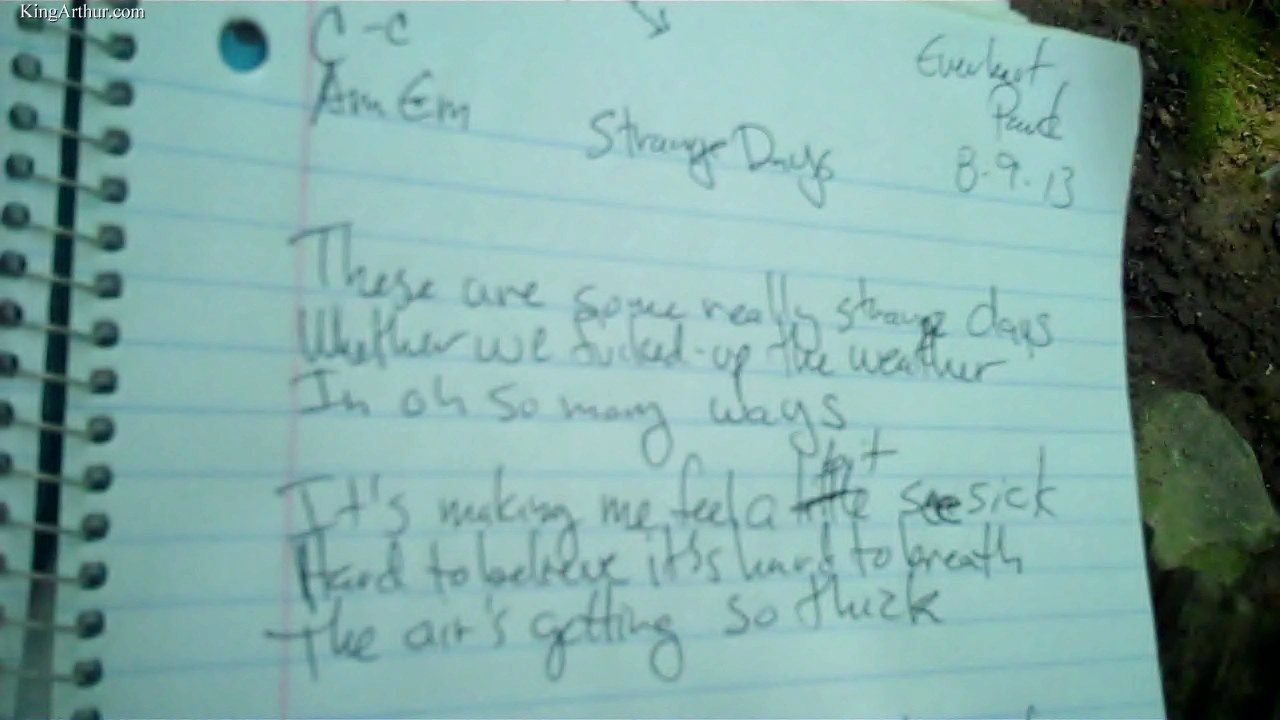 KingArthur.com
C - C
Am Em
Strange Days
Park
8.9.13
These are some really strange days
Whether we fucked-up the weather
In oh so many ways
bit
It's making me feel a little see sick
Hard to believe it's hard to breath
The air's getting so thick